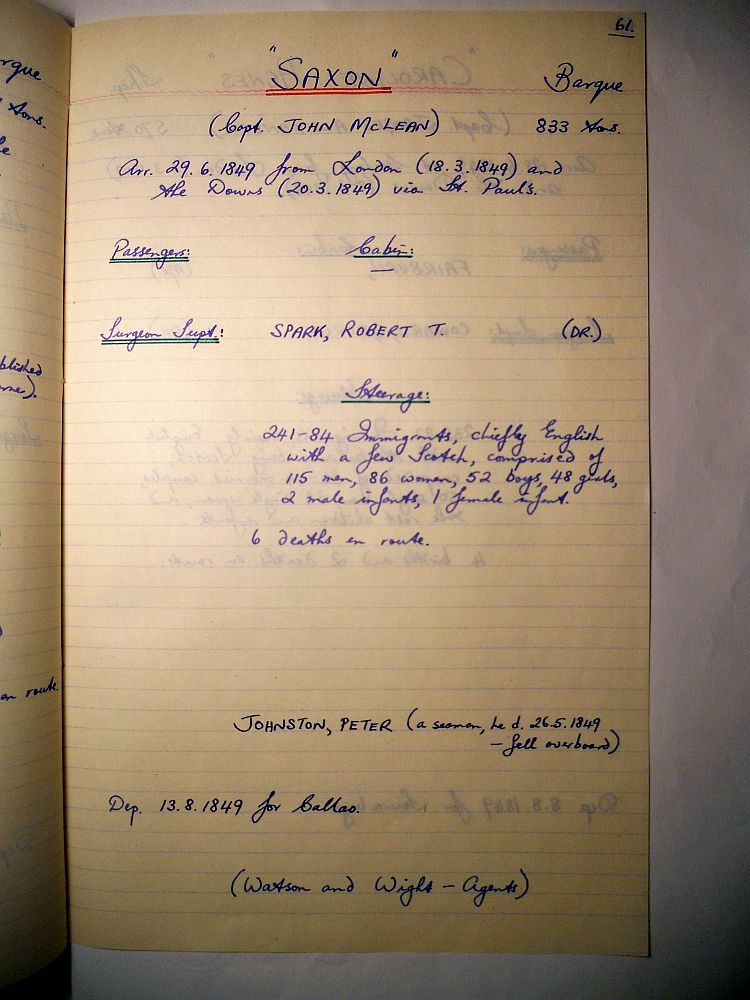 61.
"SAXON" Barque
(Capt. JOHN McLEAN) 833 tons.
Arr. 29.6.1849 from London (18.3.1849) and
the Downs (20.3.1849) via St. Paul's.
Passengers: Cabin:
Surgeon Supt.: SPARK, ROBERT T. (DR.)
Steerage:
241-84 Immigrants, chiefly English
with a few Scotch, comprised of
115 men, 86 women, 52 boys, 48 girls,
2 male infants, 1 female infant.
6 deaths en route.
JOHNSTON, PETER (a seaman, he d. 26.5.1849
- fell overboard)
Dep. 13.8.1849 for Callao.
(Watson and Wight - Agents)
rque
tons.
en route.